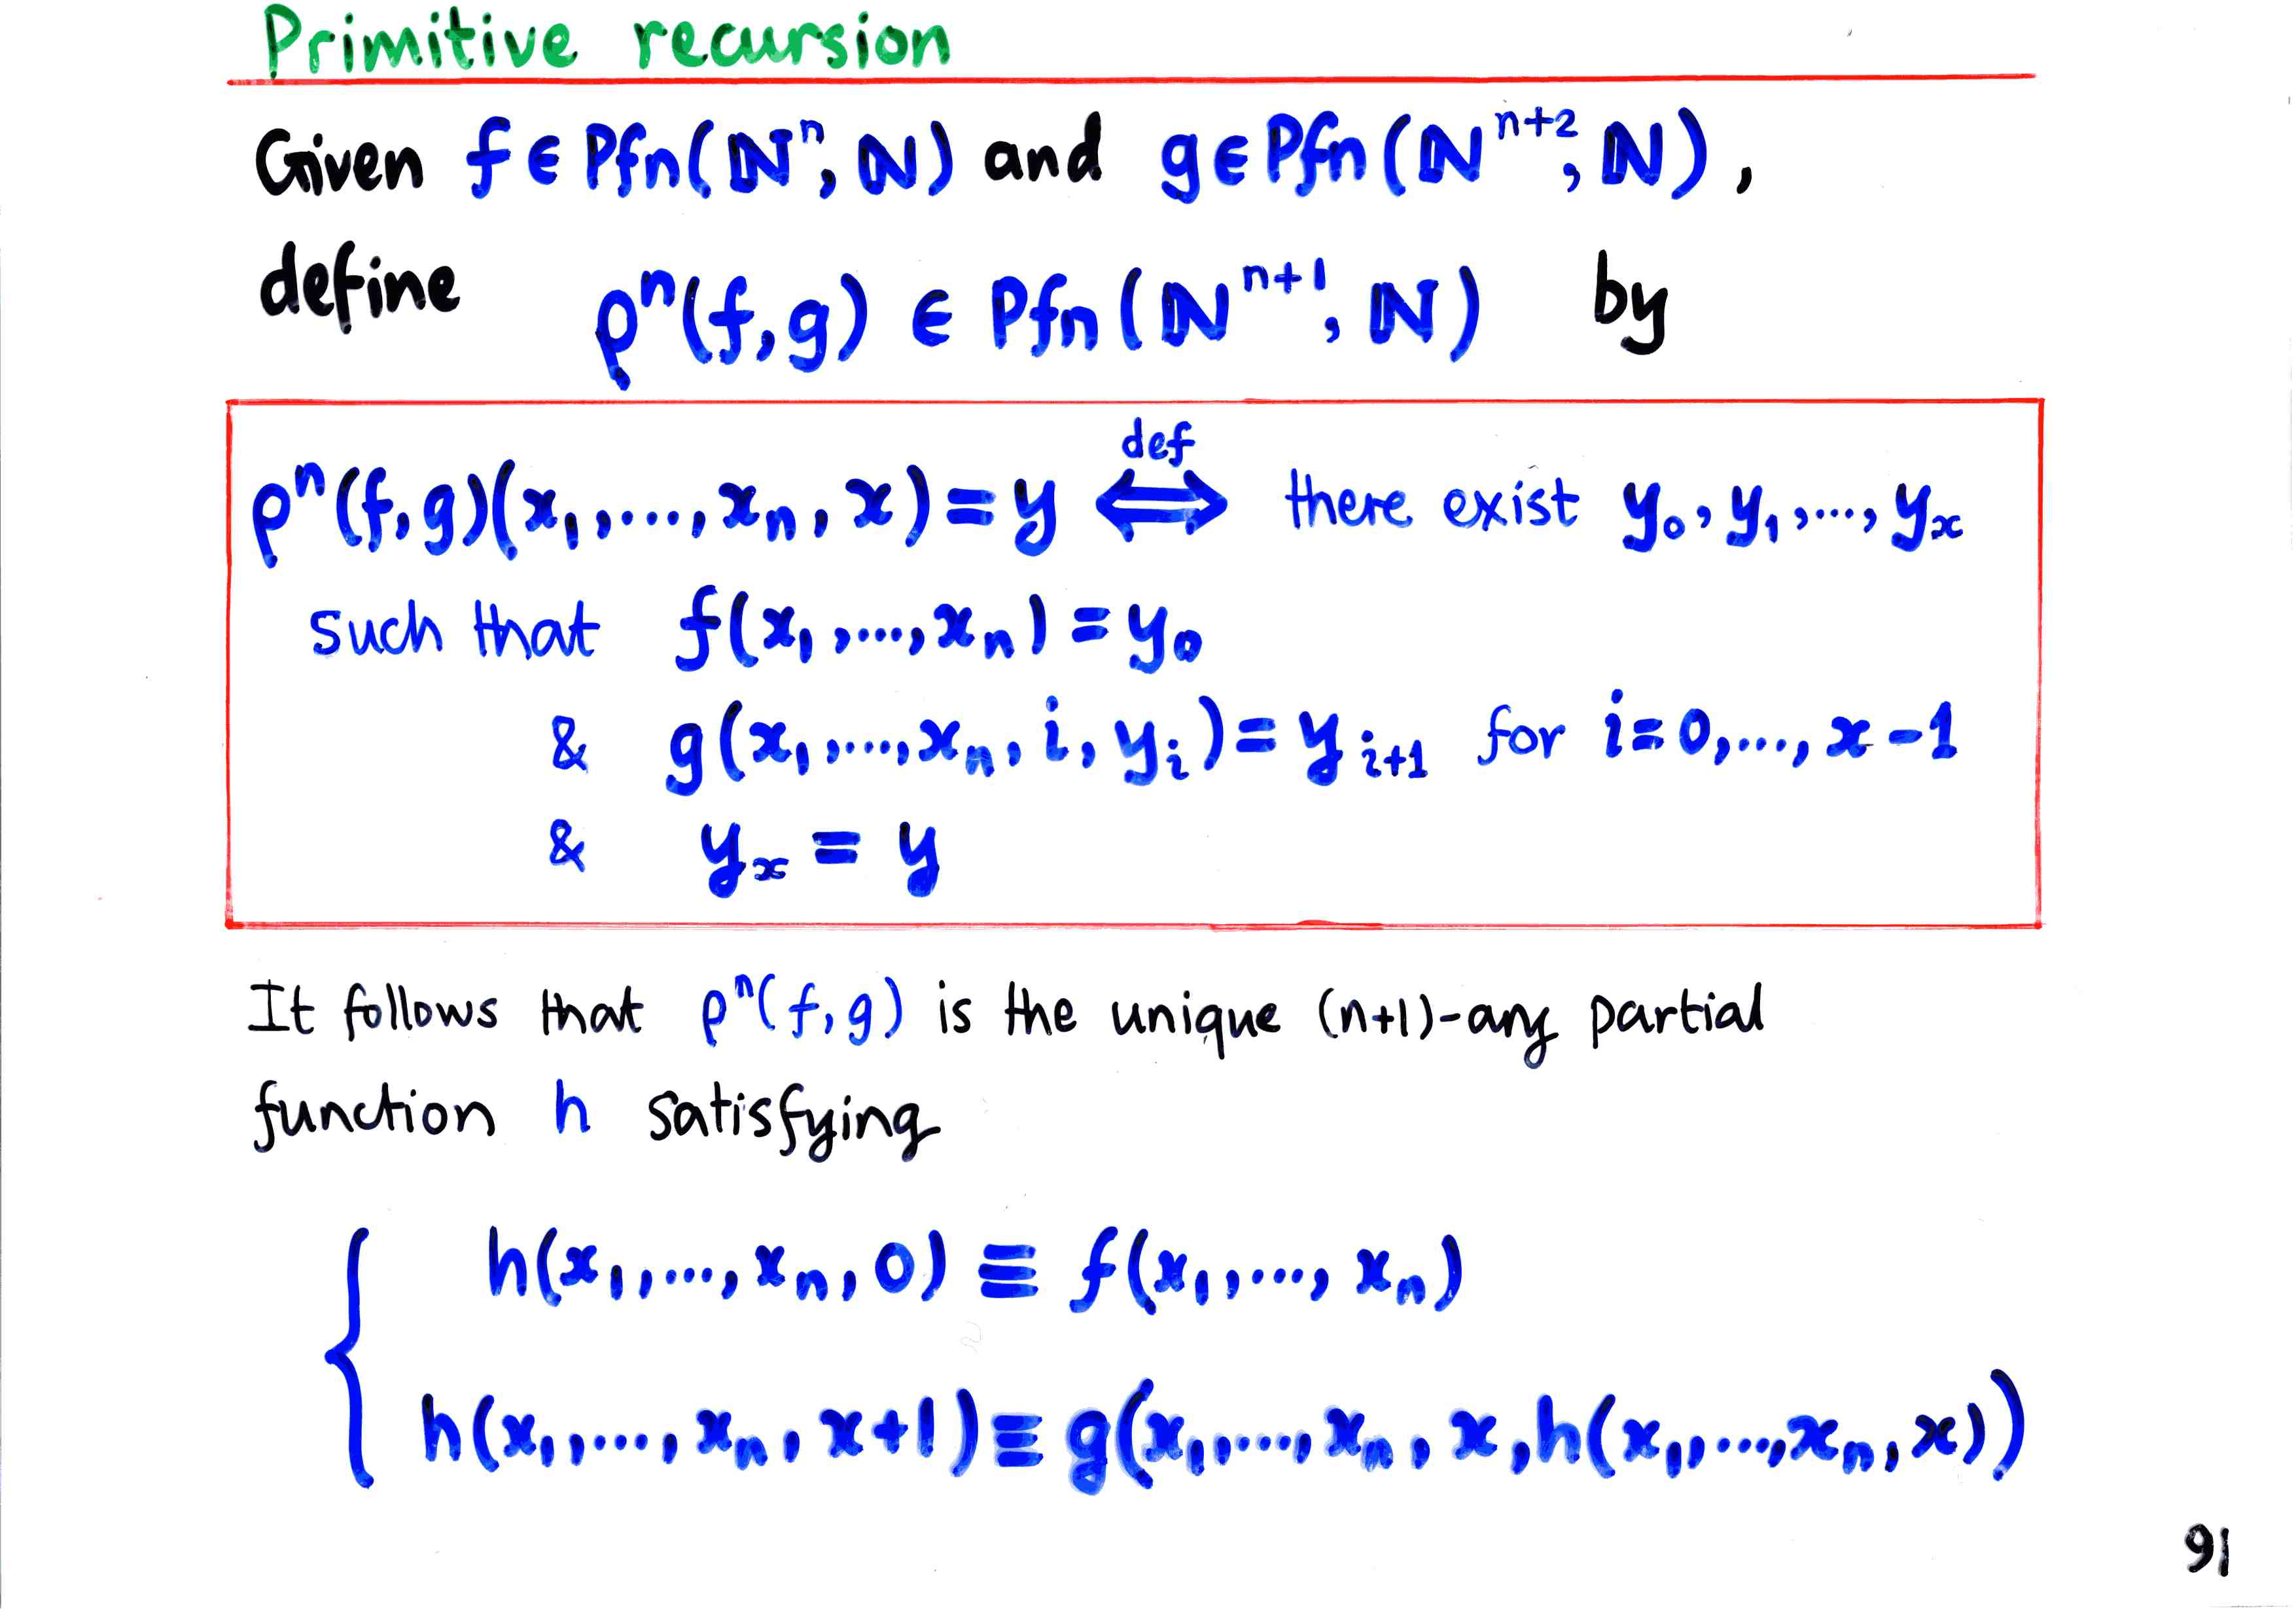 Primitive recursion
Given f ∈ Pfn(ℕⁿ, ℕ) and g ∈ Pfn(ℕⁿ⁺², ℕ),
define ρⁿ(f,g) ∈ Pfn(ℕⁿ⁺¹, ℕ) by
def
ρⁿ(f,g)(x₁,....,xₙ,x) = y ⟺ there exist y₀,y₁,...,yₓ
such that f(x₁,....,xₙ) = y₀
& g(x₁,....,xₙ,i,yᵢ) = yᵢ₊₁ for i=0,...,x-1
& yₓ = y
It follows that ρⁿ(f,g) is the unique (n+1)-ary partial
function h satisfying
h(x₁,....,xₙ,0) ≡ f(x₁,....,xₙ)
h(x₁,....,xₙ,x+1) ≡ g(x₁,....,xₙ,x,h(x₁,....,xₙ,x))
91